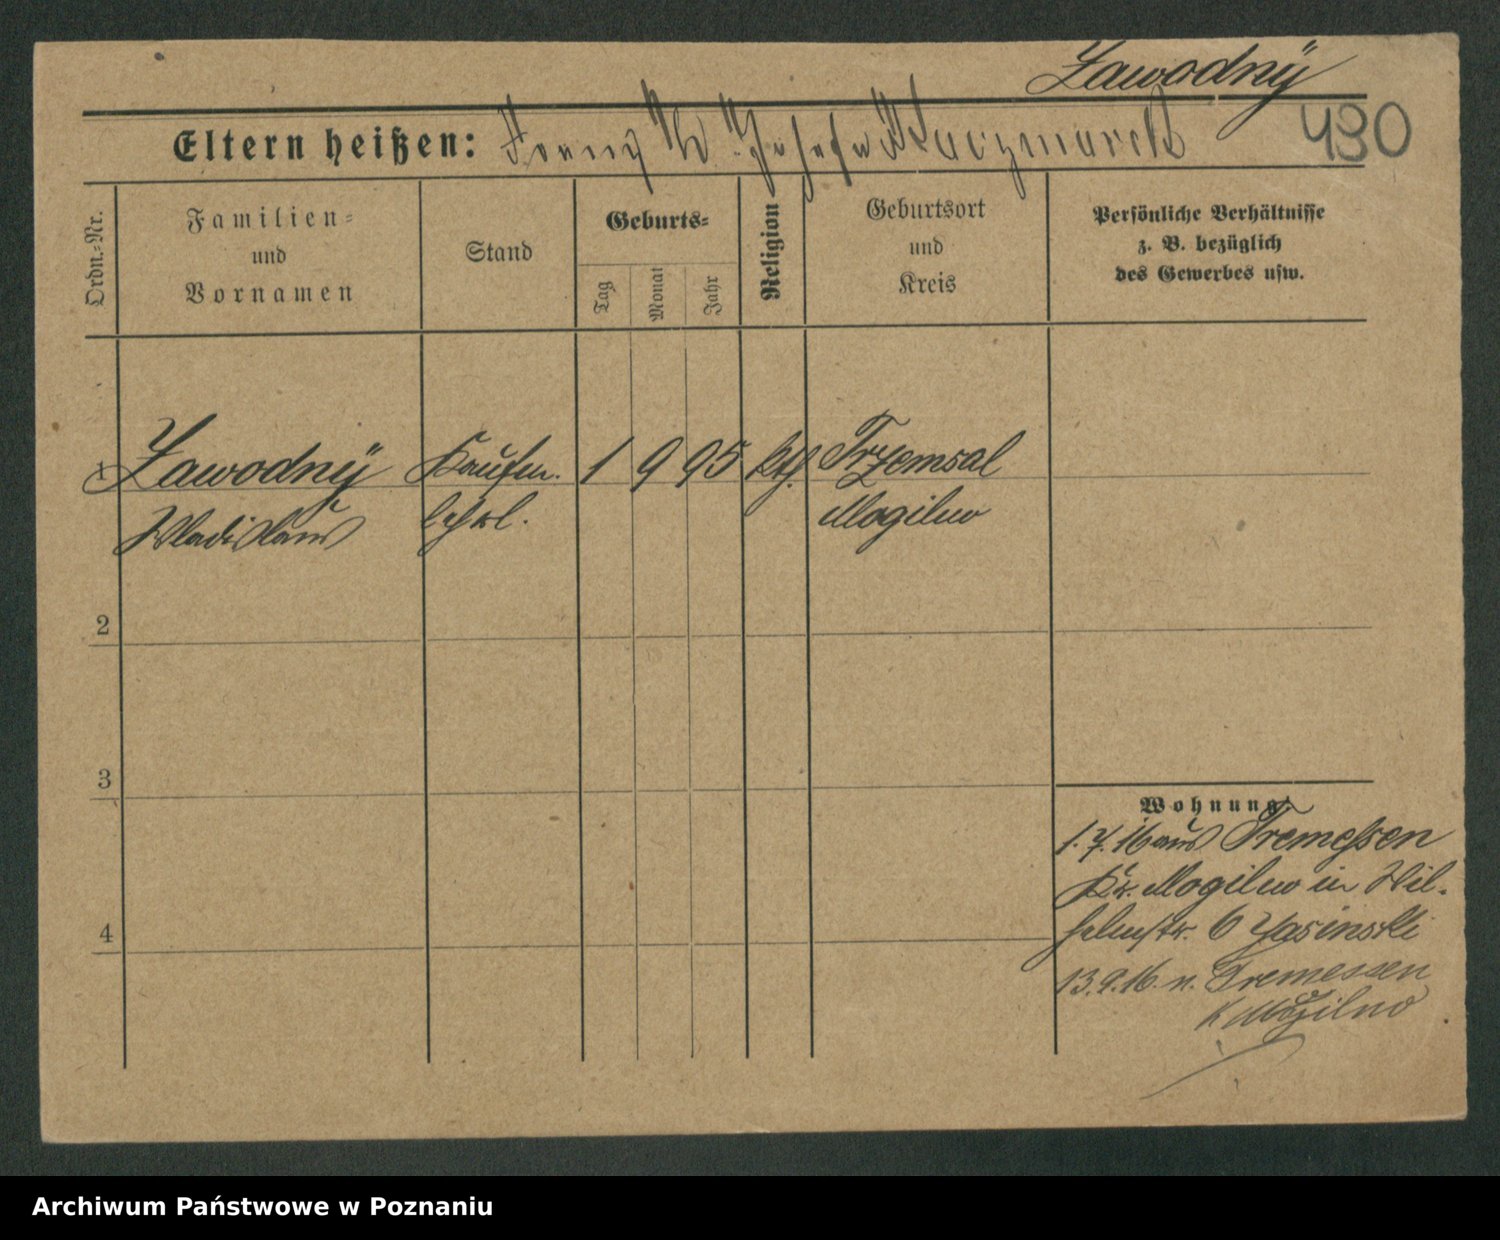 Zawodnÿ
Eltern heißen: Franz u. Josefa Kaczmarek
490
Ordn.=Nr.
Familien=
und
Vornamen
Stand
Geburts=
Tag
Monat
Jahr
Religion
Geburtsort
und
Kreis
Persönliche Verhältnisse
z. B. bezüglich
des Gewerbes usw.
1 Zawodnÿ Kaufm. 1 9 95 kth. Trzemsal
Wladislaus lehrl. Mogilno
2
3
4
Wohnung:
1.7.16 aus Tremessen
Kr. Mogilno in Wil-
helmstr. 6 Jasinski
13.9.16 n. Tremessen
K Mogilno
Archiwum Państwowe w Poznaniu